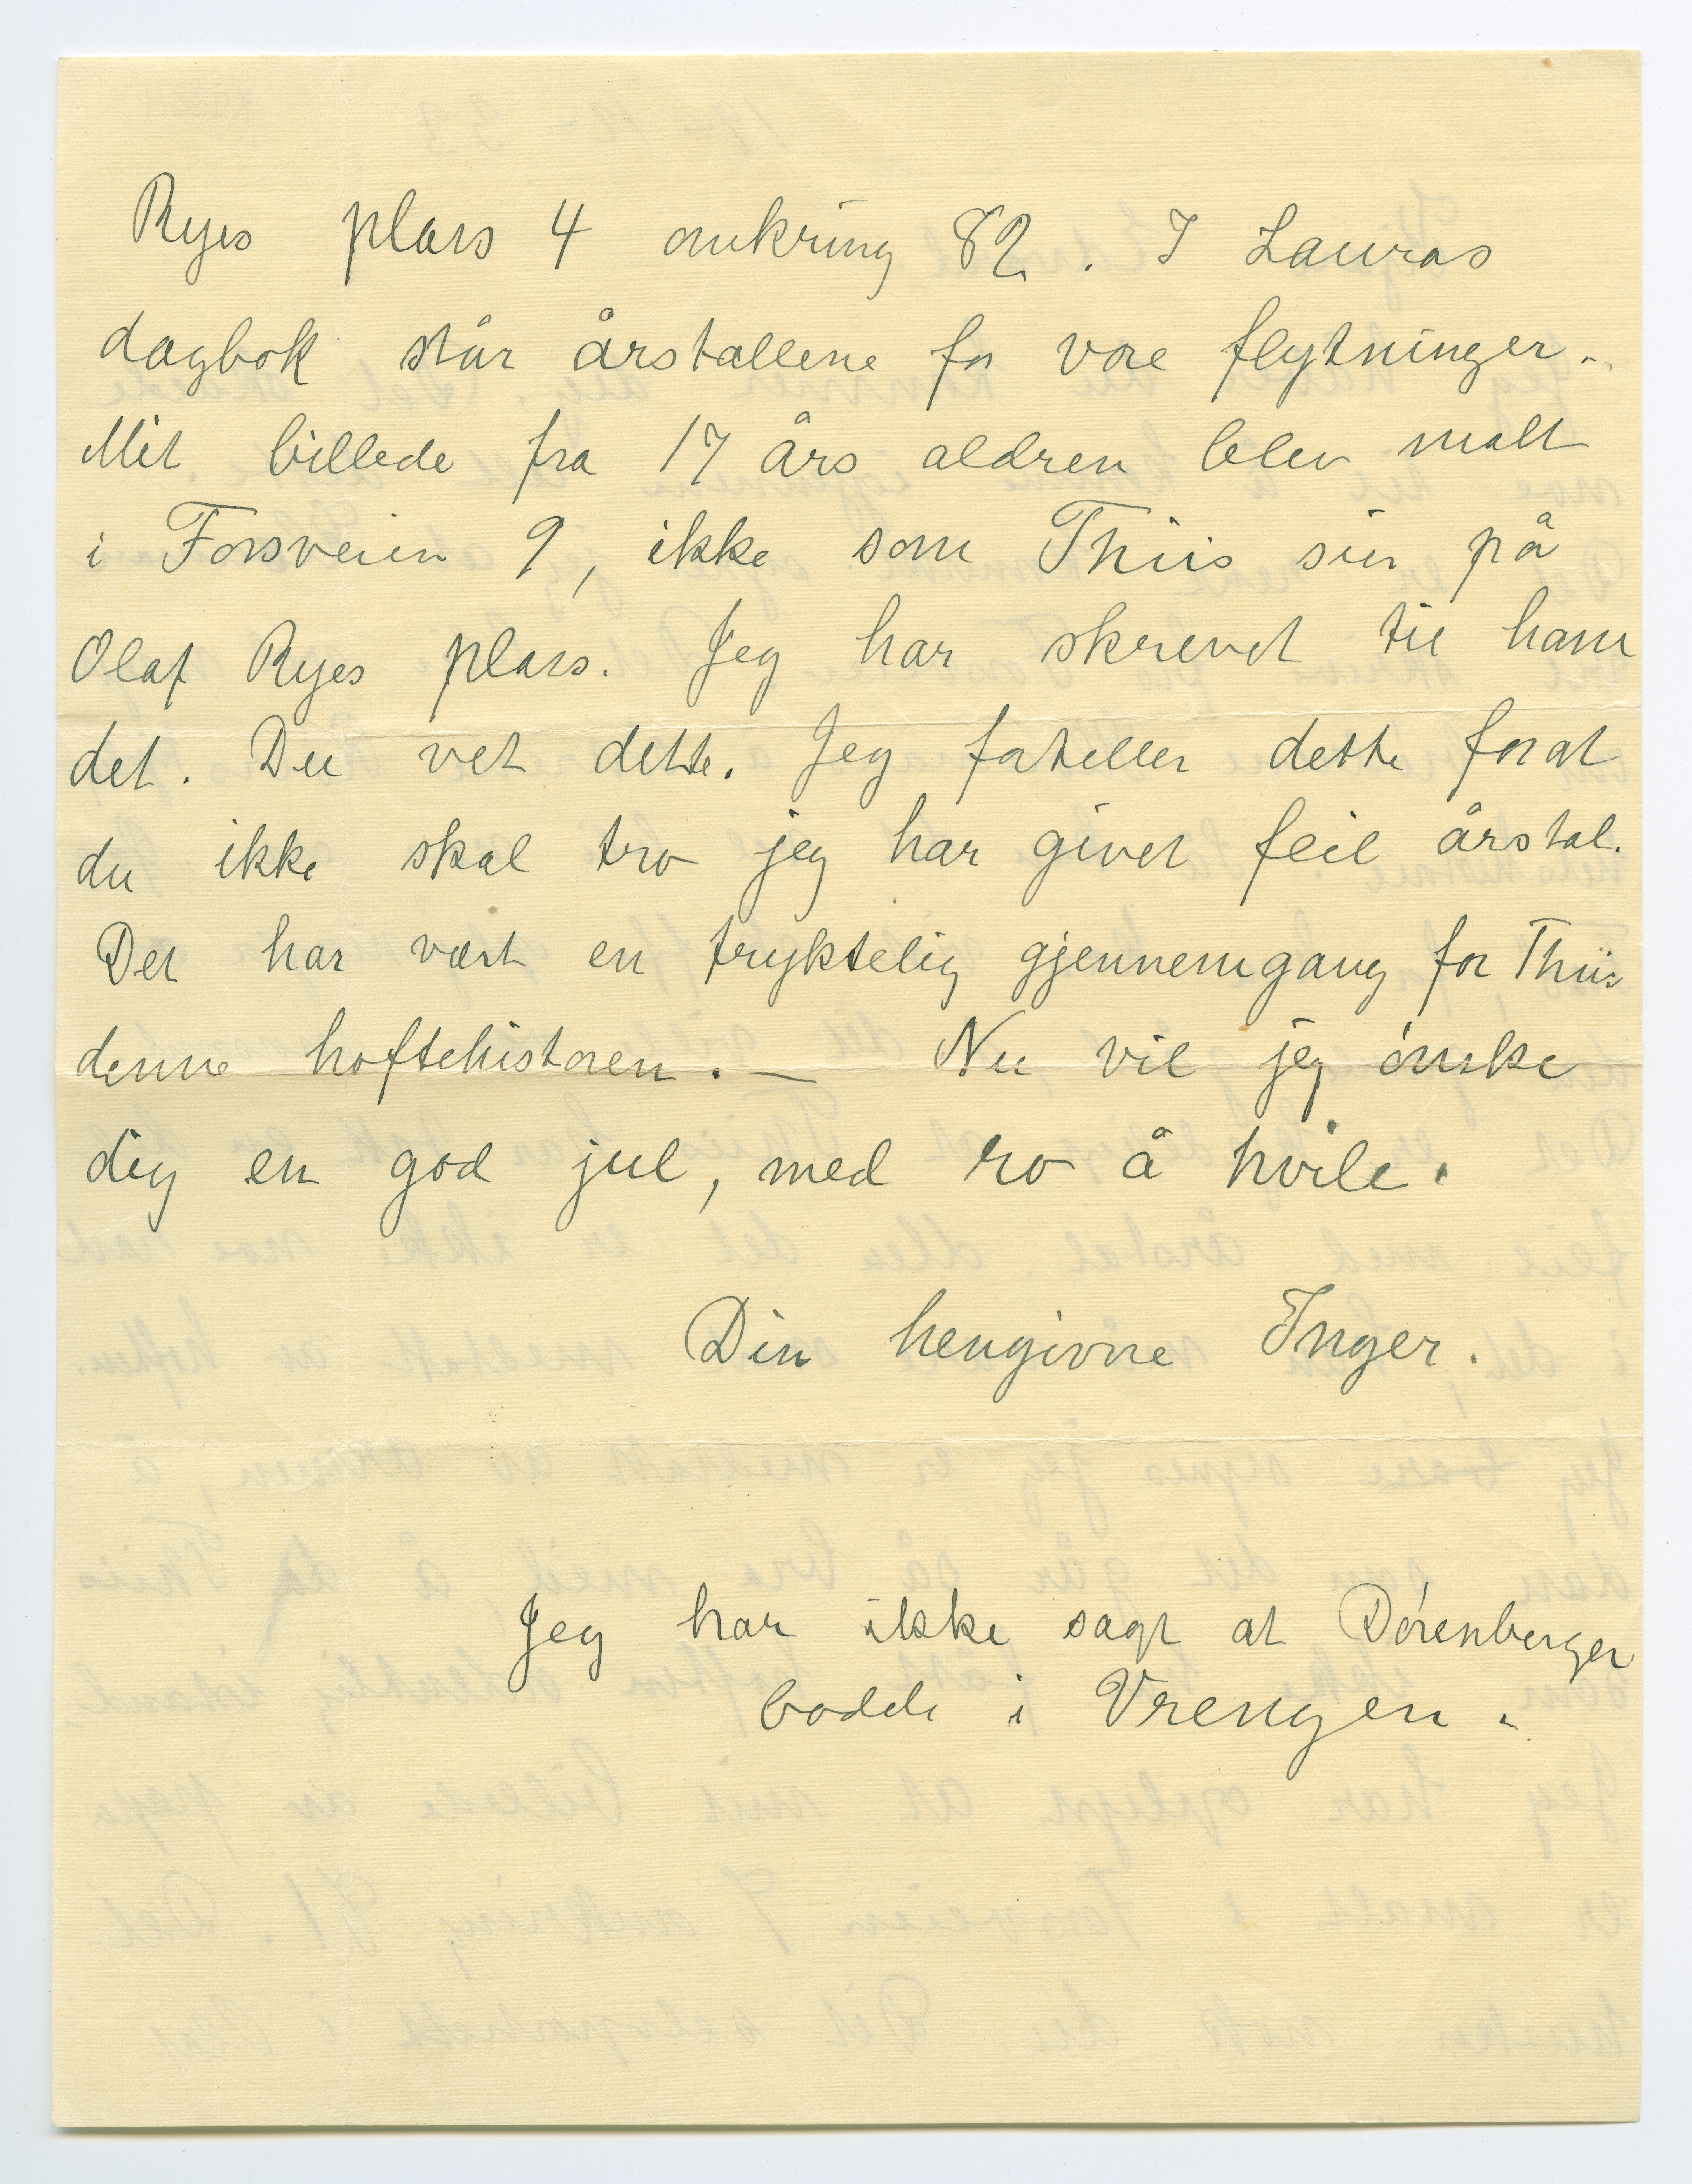 Ryes plass 4 omkring 82. I Lauras
dagbok står årstallene for vore flytninger.
Mit billede fra 17 års aldren blev malt
i Fossveien 9, ikke som Thiis sier på
Olaf Ryes plass. Jeg har skrevet til ham
det. Du vet dette. Jeg forteller dette forat
du ikke skal tro jeg har givet feil årstal.
Det har vært en fryktelig gjennemgang for Thiis
denne hoftehistorien. — Nu vil jeg ønske
dig en god jul, med ro å hvile.
Din hengivne Inger.
Jeg har ikke sagt at Dörenberger
bodde i Vrengen.